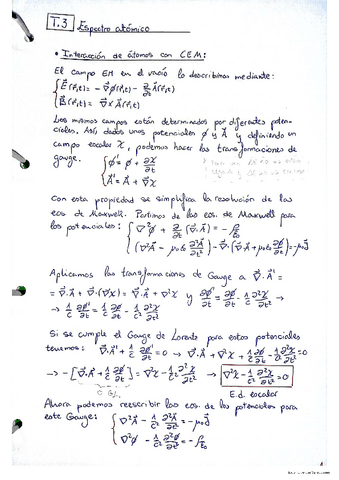 T.3 Espectro atómico
• Interacción de átomos con CEM:
El campo EM en el vacío lo describimos mediante:
{ E⃗(r⃗,t) = -∇⃗φ(r⃗,t) - ∂/∂t A⃗(r⃗,t)
{ B⃗(r⃗,t) = ∇⃗×A⃗(r⃗,t)
Los mismos campos están determinados por diferentes poten-
ciales. Así dados unos potenciales φ y A⃗ y definiendo un
campo escalar χ, podemos hacer las transformaciones de
gauge. { φ' = φ + ∂χ/∂t
{ A⃗' = A⃗ + ∇⃗χ
Con esta propiedad se simplifica la resolución de las
ecs. de Maxwell. Partimos de las ecs. de Maxwell para
los potenciales: { ∇²φ + ∂/∂t (∇⃗·A⃗) = -ρ/ε₀
{ (∇²A⃗ - μ₀ε₀ ∂²A⃗/∂t²) - ∇⃗·(∇⃗·A⃗ + μ₀ε₀ ∂φ/∂t) = -μ₀J⃗
Aplicamos las transformaciones de Gauge a ∇⃗·A⃗' =
= ∇⃗·A⃗ + ∇⃗·(∇⃗χ) = ∇⃗·A⃗ + ∇²χ y ∂φ'/∂t = ∂φ/∂t - ∂²χ/∂t² →
→ 1/c ∂φ'/∂t = 1/c ∂φ/∂t - 1/c ∂²χ/∂t²
Si se cumple el Gauge de Lorentz para estos potenciales
tenemos: ∇⃗·A⃗' + 1/c ∂φ'/∂t = 0 → ∇⃗·A⃗ + ∇²χ + 1/c ∂φ/∂t - 1/c² ∂²χ/∂t² = 0
→ -[∇⃗·A⃗ + 1/c² ∂φ/∂t] = ∇²χ - 1/c² ∂²χ/∂t² → ∇²χ - 1/c² ∂²χ/∂t² = 0
E.d. escalar
Ahora podemos reescribir las ecs. de los potenciales para
este Gauge: { ∇²A⃗ - 1/c² ∂²A⃗/∂t² = -μ₀J⃗
{ ∇²φ - 1/c² ∂²φ/∂t² = -ρ/ε₀